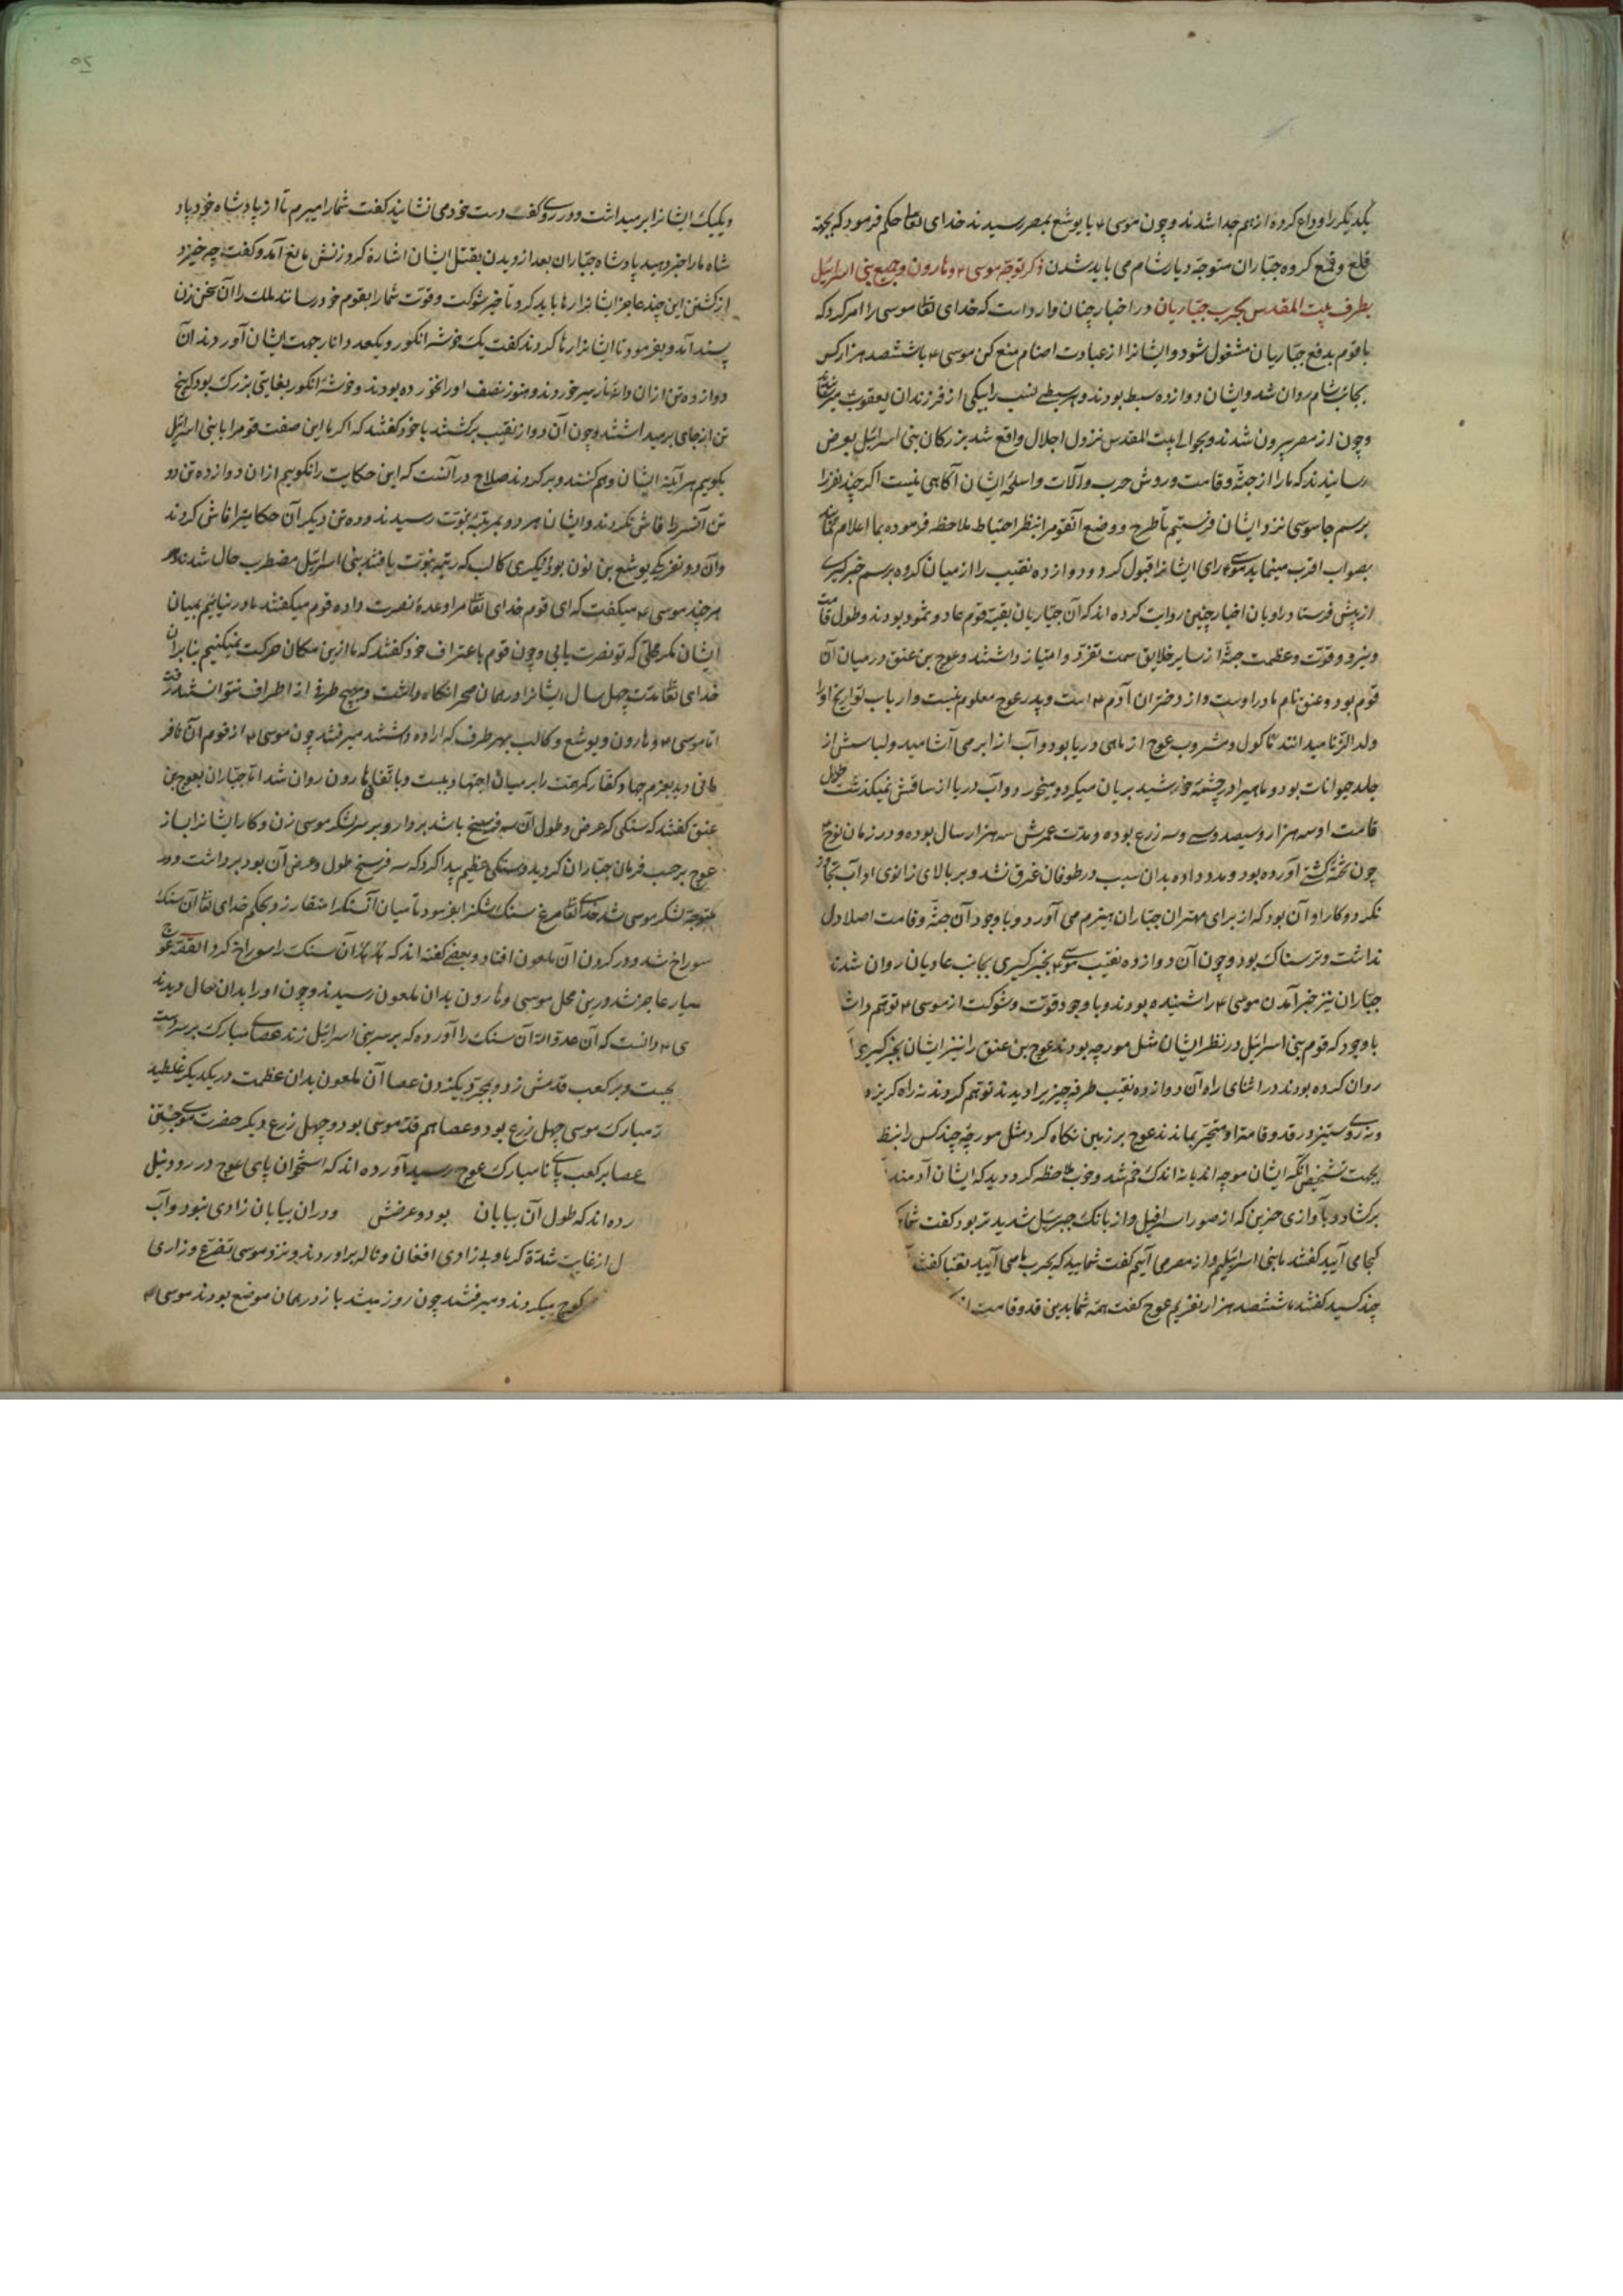 یکدیگر را وداع کرده از هم جدا شدند و چون موسی ۴ با یوشع بمصر رسیدند خدای تعالی حکم فرمود که بجهة
قلع و قمع کروه جبّاران متوجّه دیار شام می باید شدن ذکر توجّه موسی ۴ و هارون و جمیع بنی اسرائیل
بطرف بیت المقدس بحرب جبّاریان در اخبار چنان وارد است که خدای تعا موسی را امر کرد که
با قوم بدفع جبّاریان مشغول شود و ایشانرا از عبادت اصنام منع کن موسی ۴ با ششصد هزار کس
بجانب شام روان شد و ایشان دوازده سبط بودند و هر سبطی نسب را بیکی از فرزندان یعقوب ۴
و چون از مصر بیرون شدند و بحوالی بیت المقدس نزول اجلال واقع شد بزرکان بنی اسرائیل بعرض
رسانیدند که ما را از جثّه و قامت و روش حرب و آلات و اسلحهٔ ایشان آکاهی نیست اکر چند نفر را
برسم جاسوسی نزد ایشان فرستیم تا طرح و وضع آنقوم را بنظر احتیاط ملاحظه فرموده بما اعلام نمایند
بصواب اقرب مینماید موسی ۴ رای ایشانرا قبول کرد و دوازده نقیب را از میان کروه برسم خبرکیری
از پیش فرستاد راویان اخبار چنین روایت کرده اند که آن جبّاریان بقیّه قوم عاد و ثمود بودند و طول قامت
و نیرو و قوّت و عظمت جثّه از سایر خلایق سمت تفرّد و امتیاز داشتند و عوج بن عنق در میان آن
قوم بود و عنق نام مادر اوست و از دختران آدم ۴ است و پدر عوج معلوم نیست و ارباب تواریخ او را
ولد الزّنا میدانند ماکول و مشروب عوج از ماهی دریا بود و آب از ابر می آشامید و لباسش از
جلد حیوانات بود و ماهیرا در چشمهٔ خورشید بریان میکرد و میخورد و آب دریا از ساقش نمیکذشت طول
قامت او سه هزار و سیصد و سی و سه زرع بوده و مدّت عمرش سه هزار سال بوده و در زمان نوح ۴
چون تختهٔ کشتی آورده بود و مدد داده بدان سبب در طوفان غرق نشد و بر بالای زانوی او آب تجاوز
نکرد و کار او آن بود که از برای مهتران جبّاران هیزم می آورد و با وجود آن جثّه و قامت اصلا دل
نداشت و ترسناک بود و چون آن دوازده نقیب موسی ۴ بخبرکیری بجانب عادیان روان شدند
جبّاران نیز خبر آمدن موسی ۴ را شنیده بودند و با وجود قوّت و شوکت از موسی ۴ توهّم داشت
با وجود که قوم بنی اسرائیل در نظر ایشان مثل مورچه بودند عوج بن عنق را نیز ایشان بخبرکیری
روان کرده بودند در اثنای راه آن دوازده نقیب طرفه چیزیرا دیدند توهّم کردند نه راه کریز و
و نه روی ستیز در قد و قامت او متحیّر بماندند عوج بر زمین نکاه کرد مثل مورچه چند کس را بنظر
بجهت تشخیص آنکه ایشان مورچه اند یا نه اندک خم شد و خوب ملاحظه کرد دید که ایشان آدمند
برکشاد و بآوازی حزین که از صور اسرافیل و از بانک جبرئیل شدیدتر بود کفت شما
کجا می آیید کفتند ما بنی اسرائیلیم و از مصر می آییم کفت شمایید که بحرب ما می آیید نقبا کفتند
چند کسید کفتند ما ششصد هزار نفریم عوج کفت همه شما بدین قد و قامت
و یکیک ایشانرا بر میداشت و در روی کف دست خود می نشانید کفت شما را میبرم تا از پادشاه خود باد
شاه ما را خبر دهید پادشاه جبّاران بعد از دیدن بقتل ایشان اشاره کرد زنش مانع آمد و کفت چه خیزد
از کشتن این چند عاجز ایشانرا رها باید کرد تا خبر شوکت و قوّت شما را بقوم خود رسانند ملک را آن سخن زن
پسند آمد و بفرمود تا ایشانرا رها کردند کفت یک خوشه انکور و یکعدد انار جهت ایشان آوردند آن
دوازده تن از آن دانه انار سیر خوردند و هنوز نصف او را نخورده بودند و خوشهٔ انکور بغایتی بزرک بود که پنج
تن از جای بر میداشتند و چون آن دوازده نقیب برکشتند با خود کفتند که اکر ما این صفت قوم را با بنی اسرائیل
بکوییم هر آینه ایشان وهم کنند و برکردند صلاح در آنست که این حکایت را نکوییم از آن دوازده تن دو
تن آن سر را فاش نکردند و ایشان هر دو بمرتبهٔ نبوّت رسیدند و ده تن دیکر آن حکایترا فاش کردند
و آن دو نفر یکی یوشع بن نون بود و دیکری کالب که رتبهٔ نبوّت یافتند بنی اسرائیل مضطرب حال شدند
هر چند موسی ۴ میکفت که ای قوم خدای تعا مرا وعدهٔ نصرت داده قوم میکفتند ما در نیاییم بمیان
ایشان مکر وقتی که تو نصرت یابی و چون قوم باعتراف خود کفتند که ما ازین مکان حرکت نمیکنیم بنابر آن
خدای تعا مدّت چهل سال ایشانرا در همان صحرا نکاه داشت و بهیچ طرف از اطراف نتوانستند رفت
امّا موسی ۴ و هارون و یوشع و کالب بهر طرف که اراده داشتند میرفتند چون موسی ۴ از قوم آن نافر
مانی دید بعزم جهاد کفّار کمر همّت را بر میان اجتهاد ببست و باتفاق هارون روان شد امّا جبّاران بعوج بن
عنق کفتند که سنکی که عرض و طول آن سه فرسخ باشد بردار و بر سر لشکر موسی زن و کار ایشانرا بساز
عوج بر حسب فرمان جبّاران کردید و سنکی عظیم پیدا کرد که سه فرسخ طول و عرض آن بود برداشت و رو
متوجّه لشکر موسی شد خدای تعا مرغ سنک شکنرا بفرمود تا میان آنسنکرا منقار زد و بحکم خدای تعا آن سنک
سوراخ شد و در کردن آن ملعون افتاد و بعضی کفته اند که آن سنک را سوراخ کرد القصّه عوج
بسیار عاجز شد درین محل موسی و هارون بدان ملعون رسیدند و چون او را بدان حال دیدند
ی ۴ دانست که آن عدو الله آن سنک را آورده که بر سر بنی اسرائیل زند عصای مبارک بر سر دست
بجست و بر کعب قدمش زد و بمجرّد یکزدن عصا آن ملعون بدان عظمت در یکدیکر غلطید
مبارک موسی چهل زرع بود و عصا هم قد موسی بود و چهل زرع دیکر حضرت موسی جستن
عصا بر کعب پای نامبارک عوج رسید آورده اند که استخوان پای عوج در رود نیل
رده اند که طول آن بیابان بود و عرضش و در آن بیابان زادی نبود و آب
ل از غایت شدّة کرما و بی زادی افغان و ناله بر آوردند و نزد موسی تضرّع و زاری
کوچ میکردند و میرفتند چون روز میشد باز در همان موضع بودند موسی ۴